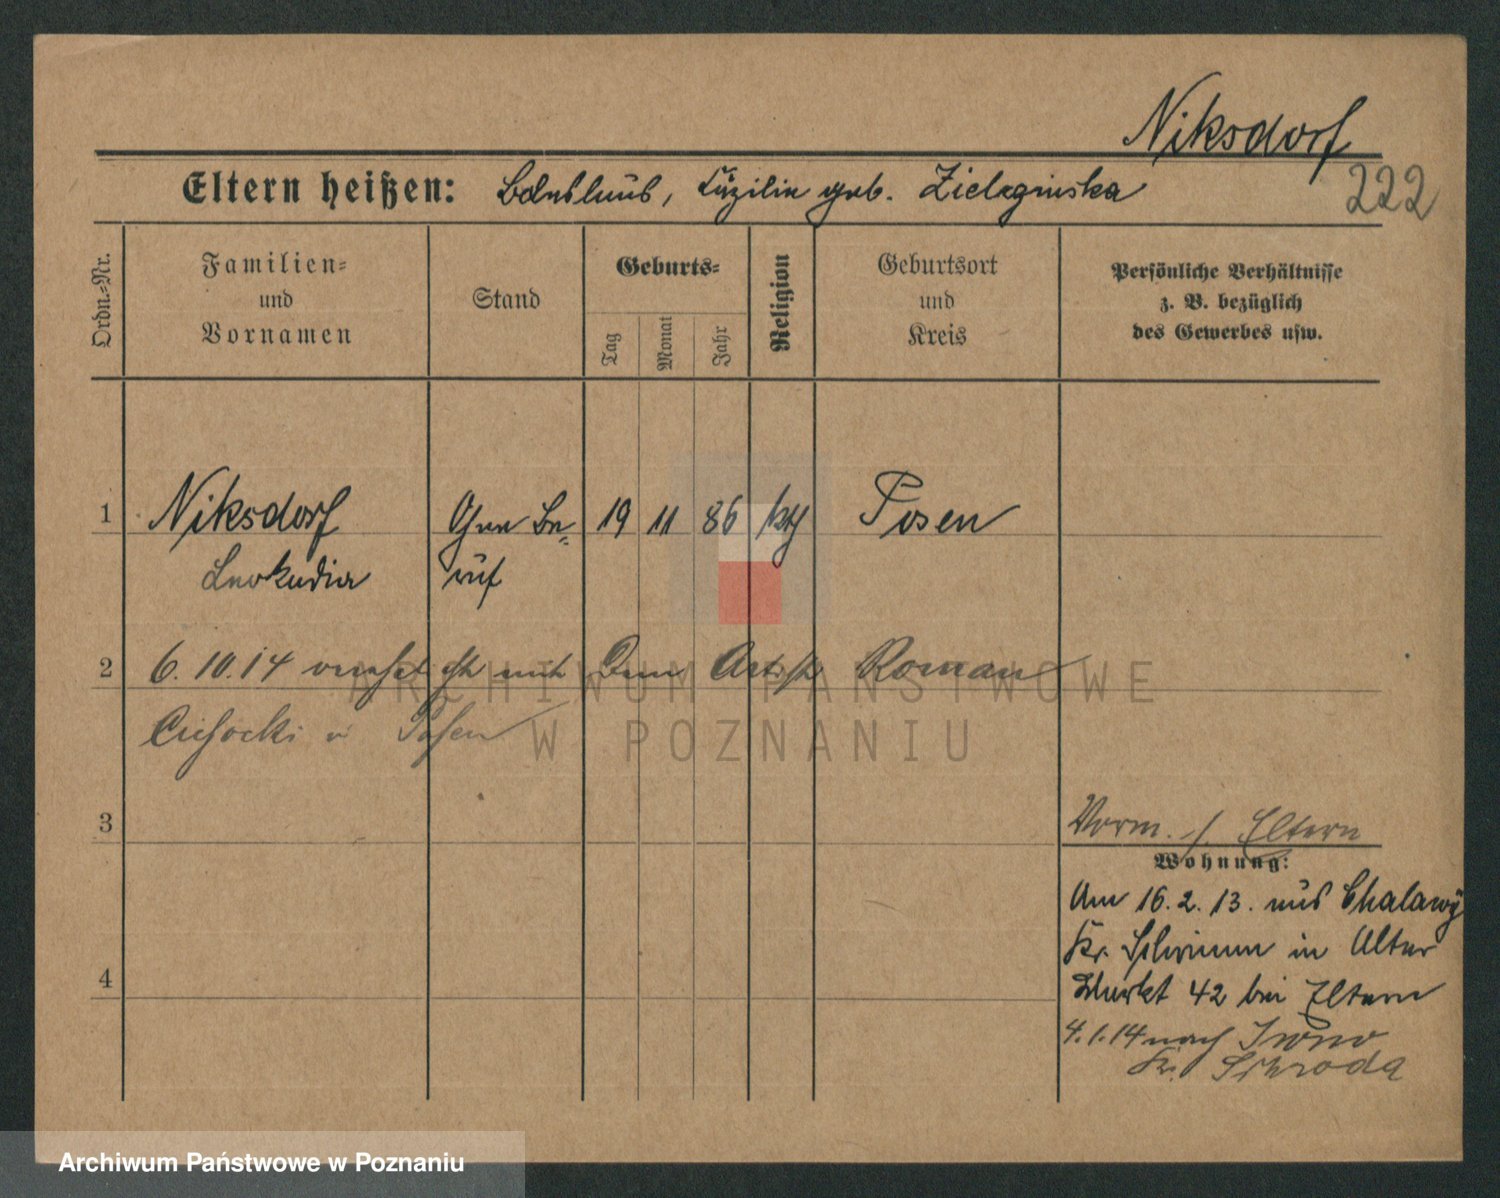 Niksdorf
Eltern heißen: Boleslaus, Cäzilie geb. Zielazinska
222
Ordn.-Nr.
Familien-
und
Vornamen
Stand
Geburts-
Tag
Monat
Jahr
Religion
Geburtsort
und
Kreis
Persönliche Verhältnisse
z. B. bezüglich
des Gewerbes usw.
1 Niksdorf Ohne Be- 19 11 86 kth Posen
Leokadia ruf
2 6. 10. 14 mit dem Artist Roman
Posen
ARCHIWUM PAŃSTWOWE
W POZNANIU
3
Vorm. s. Eltern
Wohnung:
Am 16. 2. 13. aus Chalawy
Kr. Schrimm in Alter
4 Markt 42 bei Eltern
4. 1. 14 nach
Kr. Schroda
Archiwum Państwowe w Poznaniu